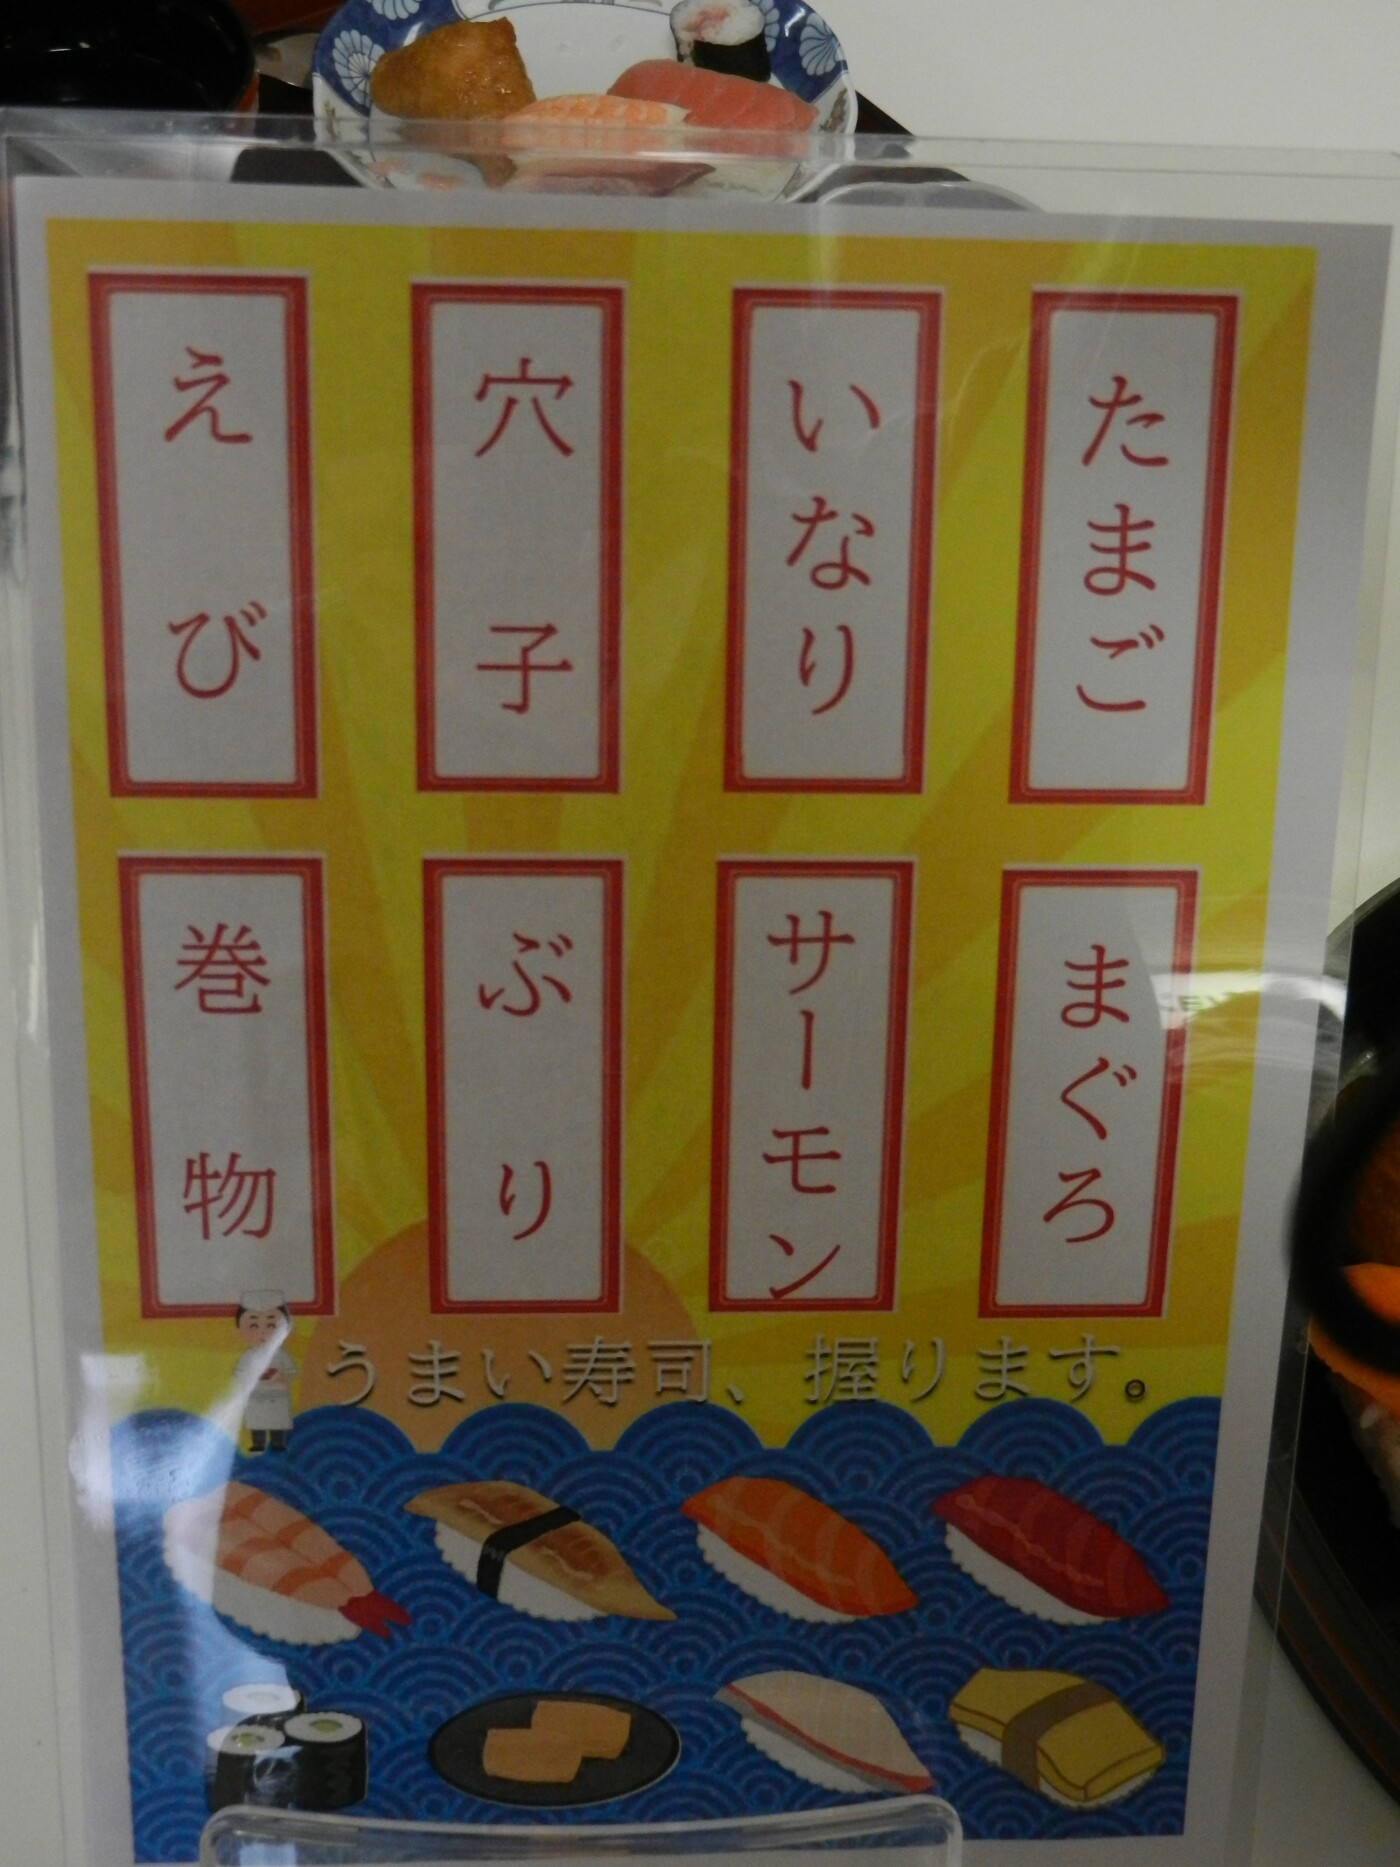 たまご
いなり
穴子
えび
まぐろ
サーモン
ぶり
巻物
うまい寿司、握ります。